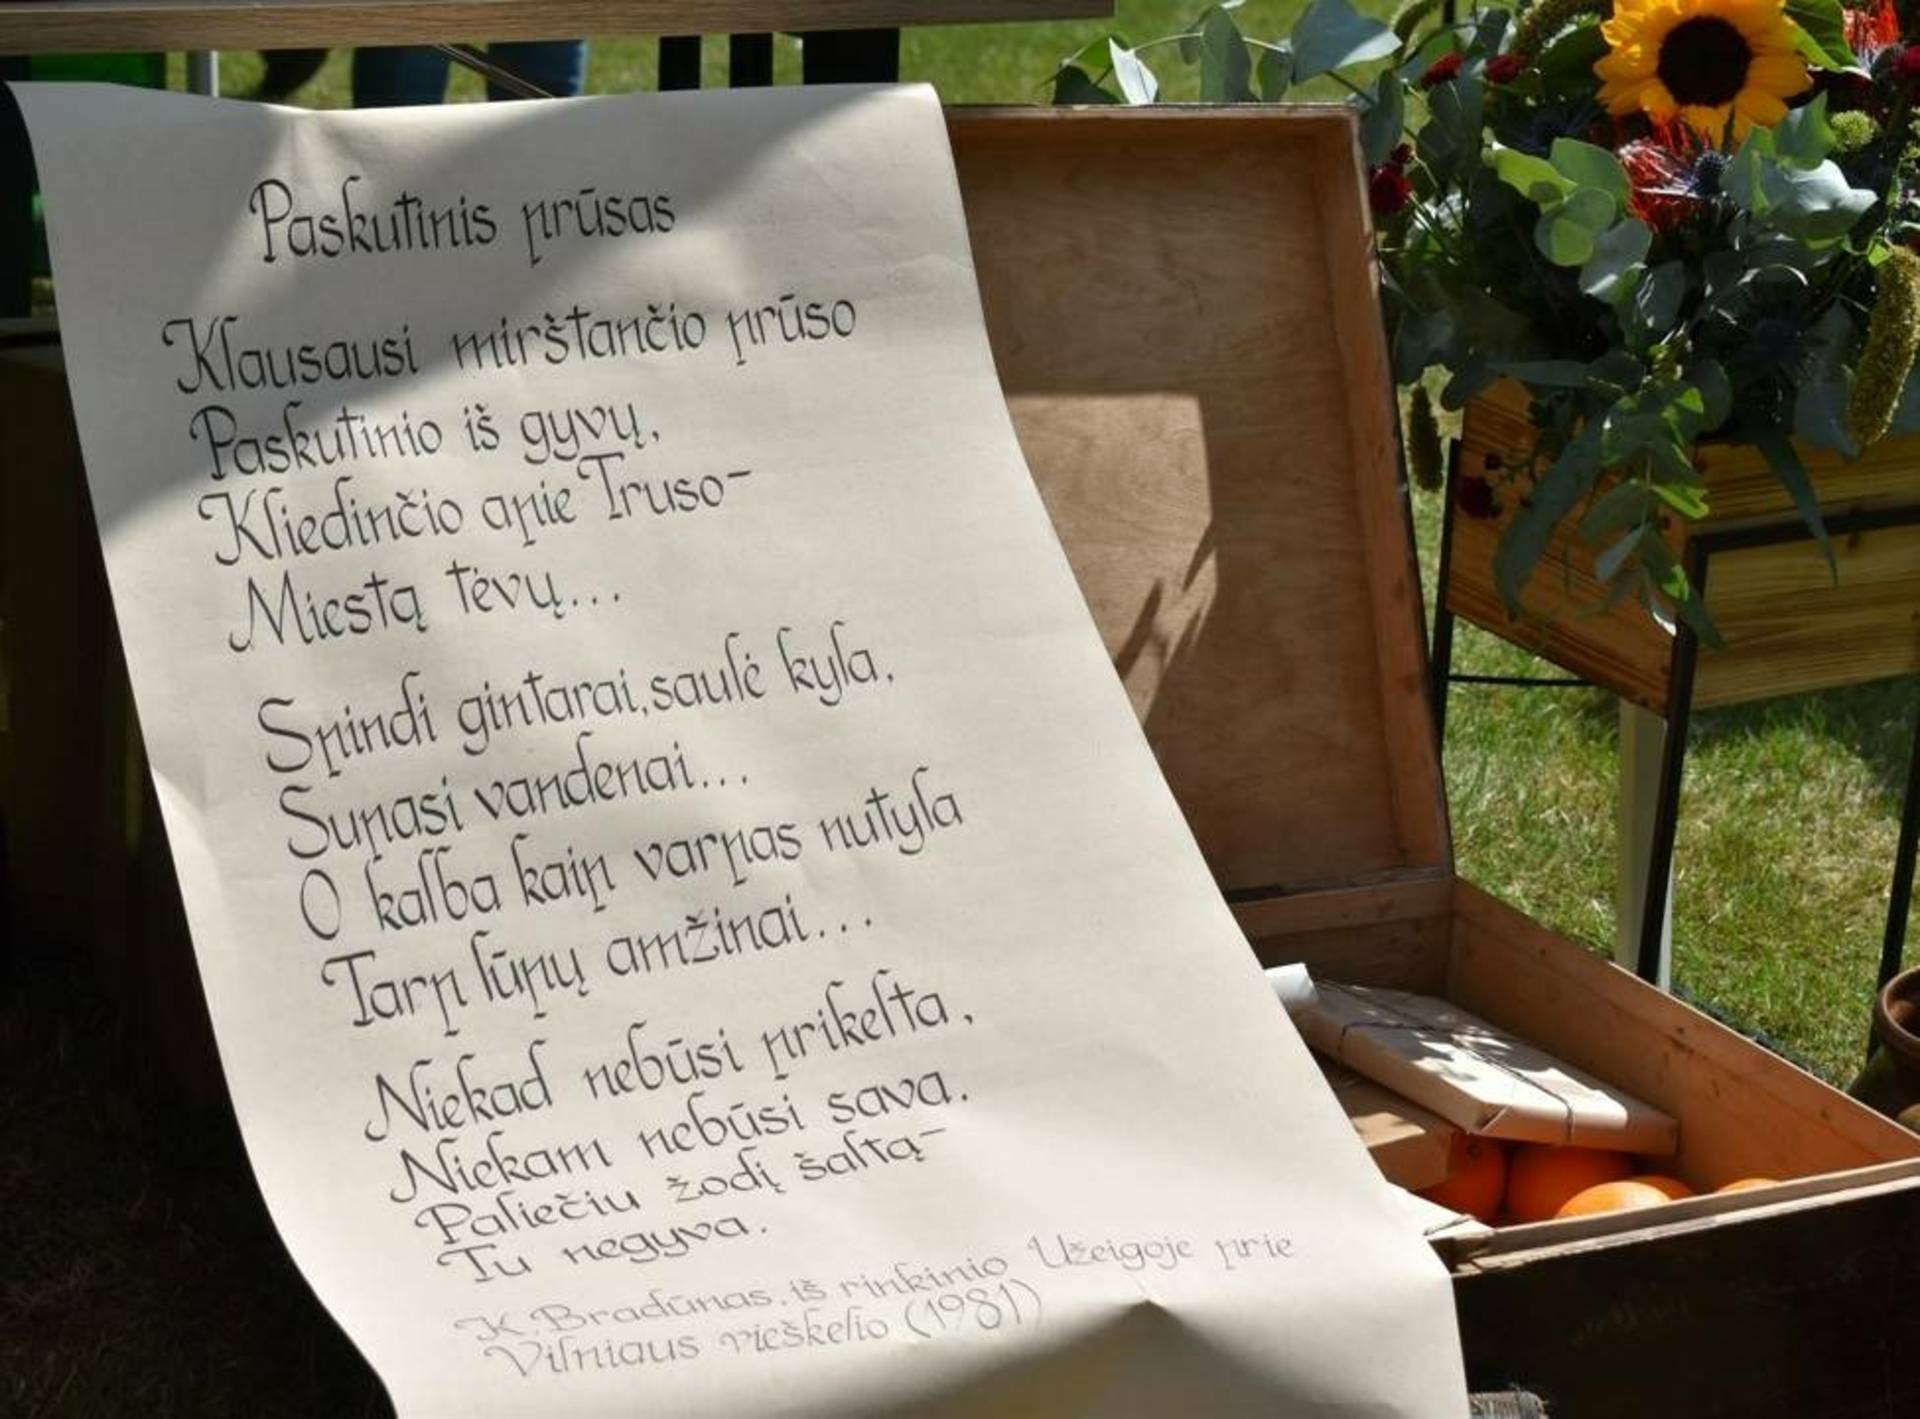 Paskutinis prūsas
Klausausi mirštančio prūso
Paskutinio iš gyvų,
Kliedinčio apie Truso–
Miestą tėvų...
Spindi gintarai, saulė kyla,
Supasi vandenai...
O kalba kaip varpas nutyla
Tarp lūpų amžinai...
Niekad nebūsi prikelta,
Niekam nebūsi sava.
Paliečiu žodį šaltą–
Tu negyva.
K. Bradūnas, iš rinkinio Užeigoje prie
Vilniaus vieškelio (1981)